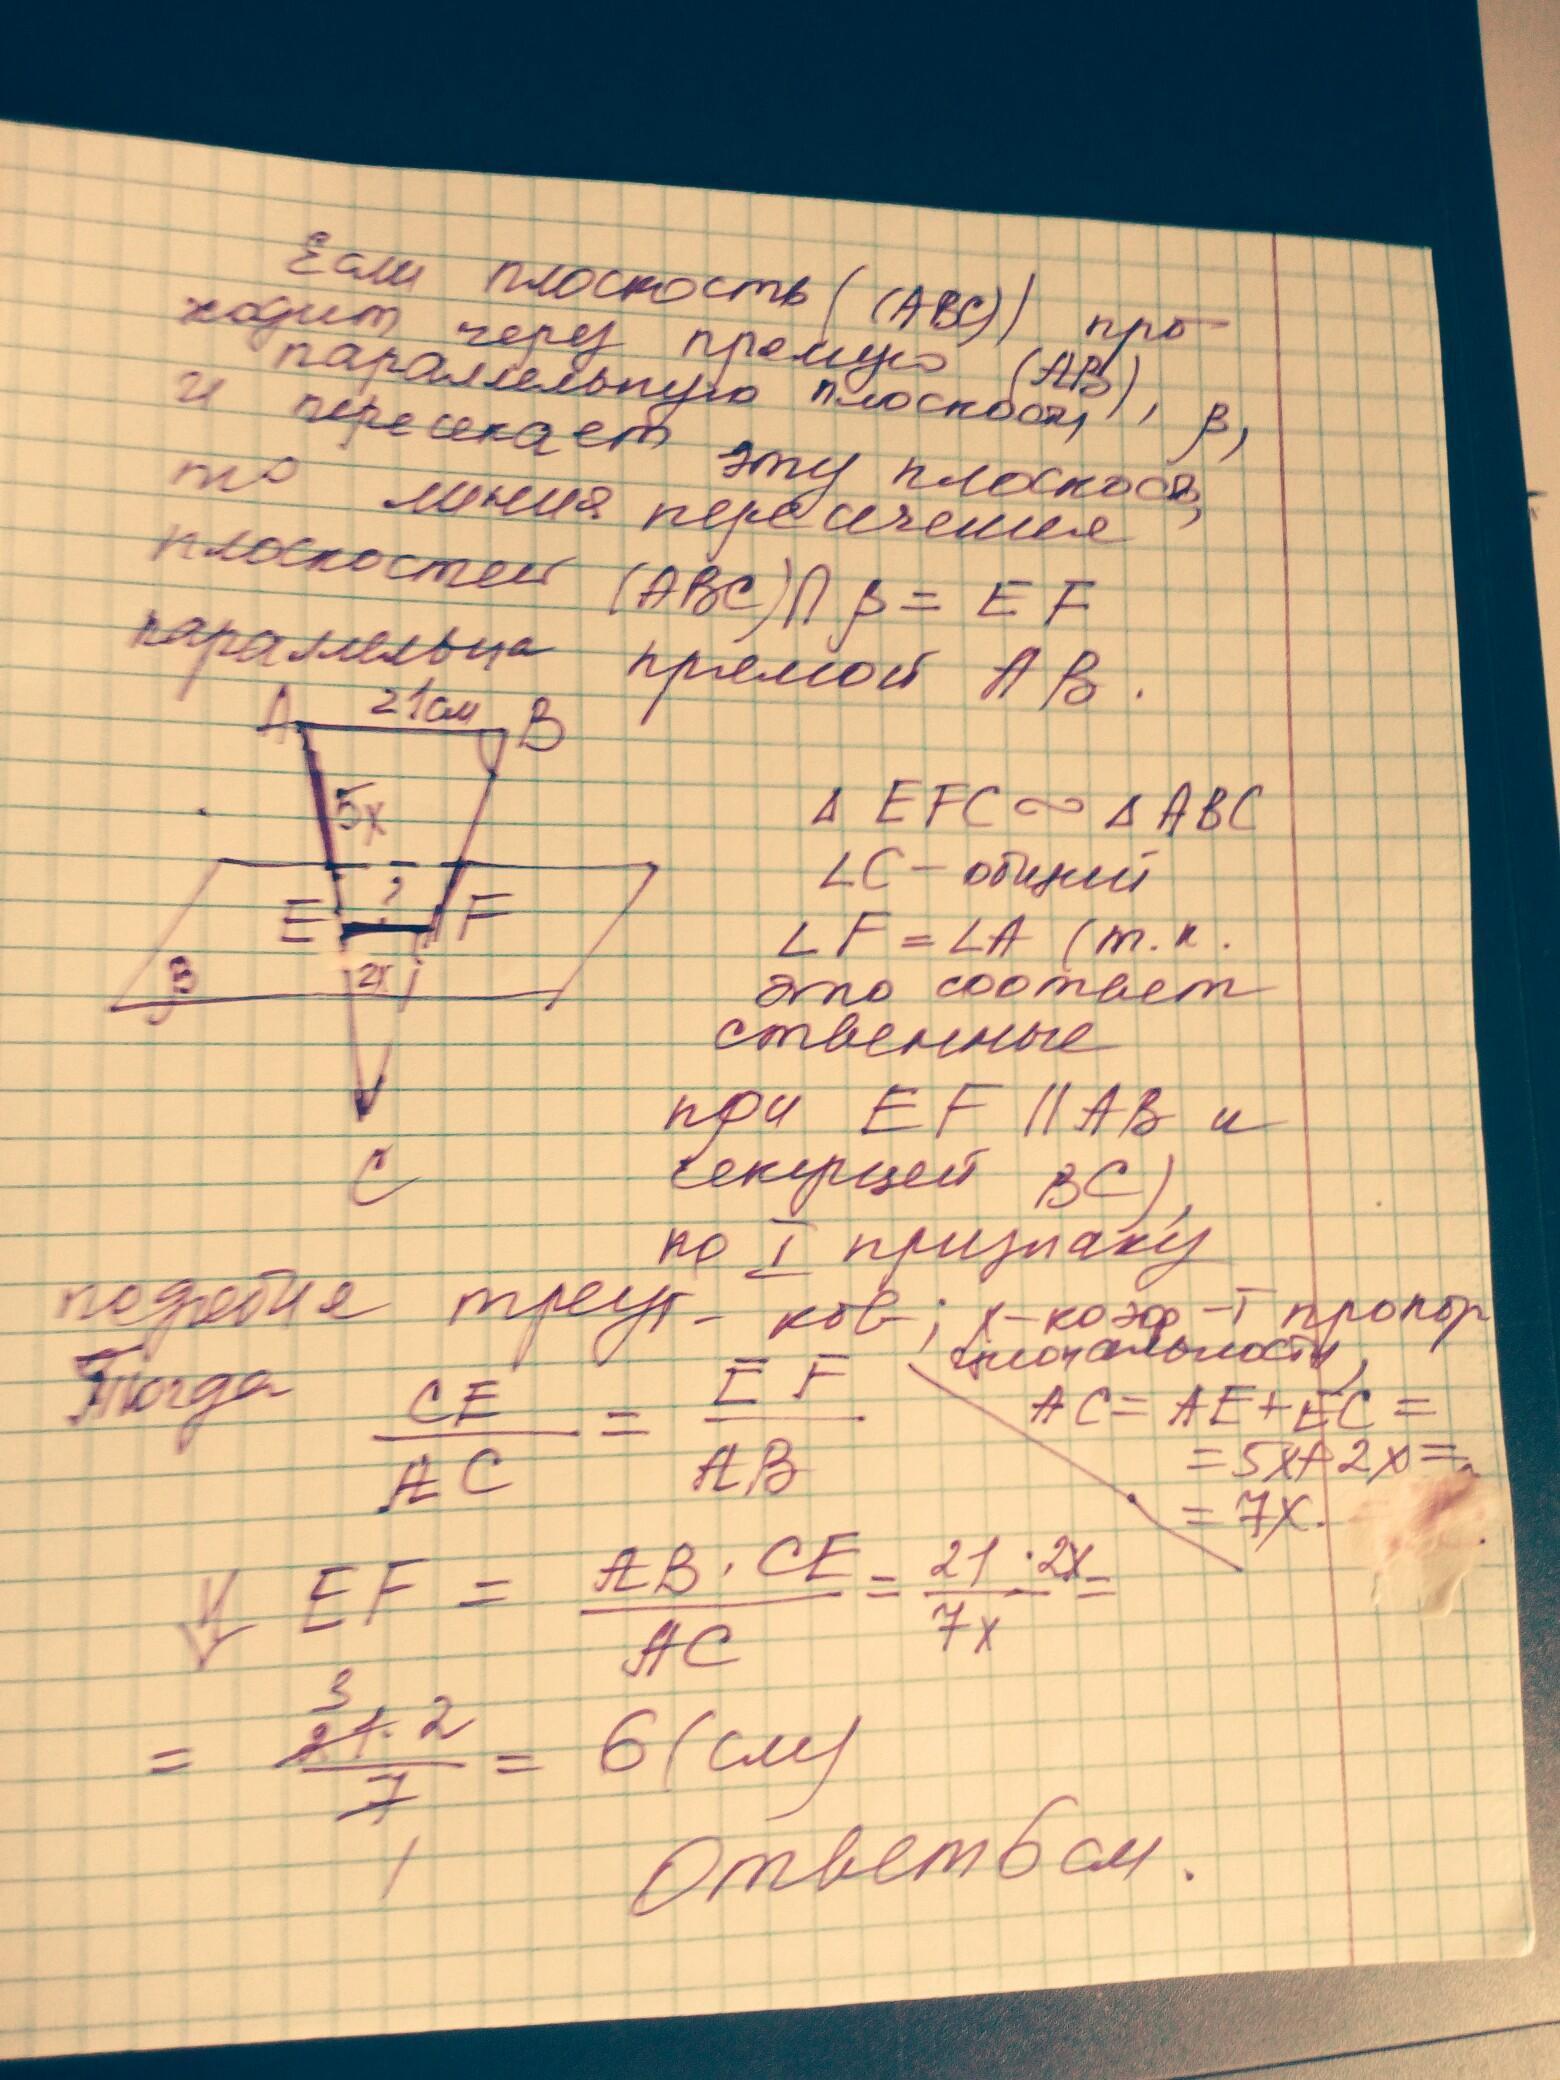 Если плоскость ((ABC)) про-
ходит через прямую (AB),
параллельную плоскости, β,
и пересекает эту плоскость,
то линия пересечения
плоскостей (ABC)∩β = EF
параллельна прямой AB.
A 21см B
5x
?
E F
β 2x
C
Δ EFC ∾ Δ ABC
∠C - общий
∠F = ∠A (т.к.
это соответ
ственные
при EF || AB и
секущей BC),
по I признаку
подобия треуг-ков; x-коэф-т пропор
циональности,
Тогда CE/AC = EF/AB
AC = AE + EC =
= 5x + 2x =
= 7x.
EF = AB · CE/AC = 21 · 2x/7x =
3
= 21 · 2/7 = 6 (см)
1
Ответ 6 см.